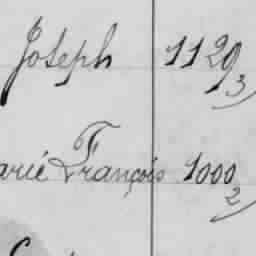 Joseph 1129
3
arie François 1000
2